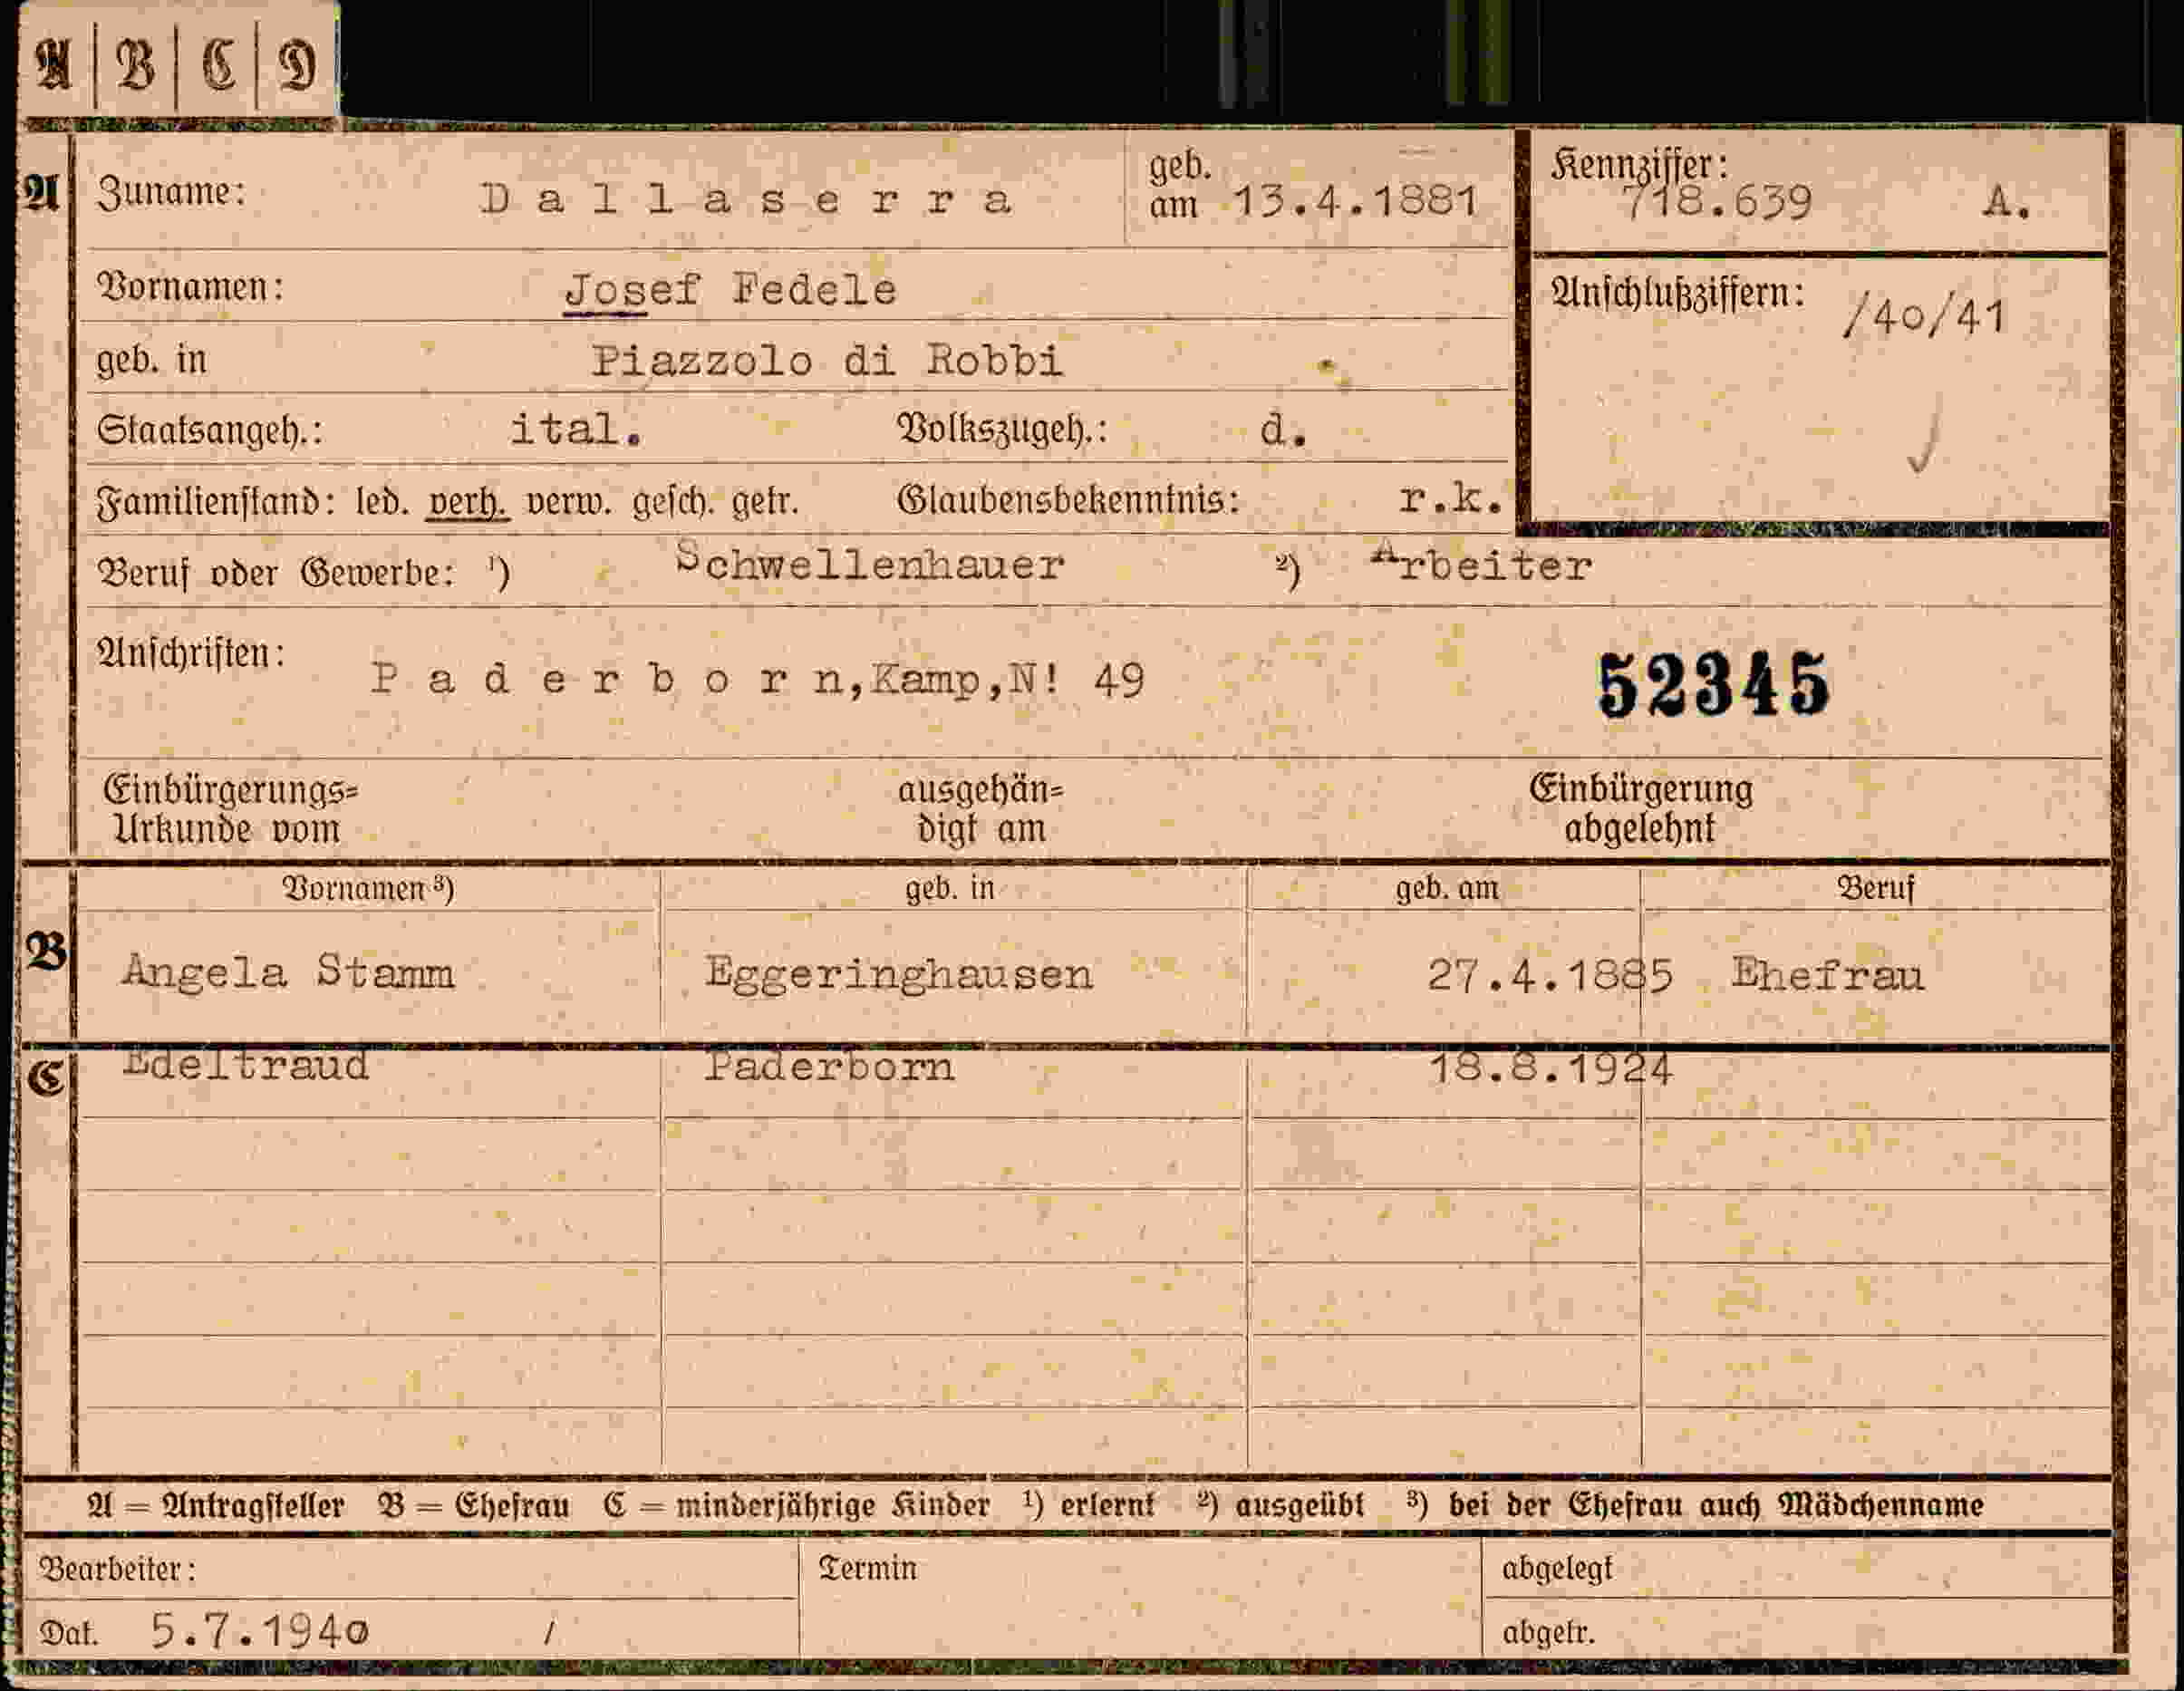 A | B | C | D
A Zuname: Dallaserra geb. am 13.4.1881 Kennziffer: 718.639 A.
Vornamen: Josef Fedele Anschlußziffern: /40/41
geb. in Piazzolo di Robbi
Staatsangeh.: ital. Volkszugeh.: d.
Familienstand: led. verh. verw. gesch. getr. Glaubensbekenntnis: r.k.
Beruf oder Gewerbe: ¹) Schwellenhauer ²) Arbeiter
Anschriften: Paderborn,Kamp,N! 49 52345
Einbürgerungs= ausgehän= Einbürgerung
Urkunde vom digt am abgelehnt
Vornamen ³) geb. in geb. am Beruf
B Angela Stamm Eggeringhausen 27.4.1885 Ehefrau
C Edeltraud Paderborn 18.8.1924
A = Antragsteller B = Ehefrau C = minderjährige Kinder ¹) erlernt ²) ausgeübt ³) bei der Ehefrau auch Mädchenname
Bearbeiter: Termin abgelegt
Dat. 5.7.1940 / abgetr.